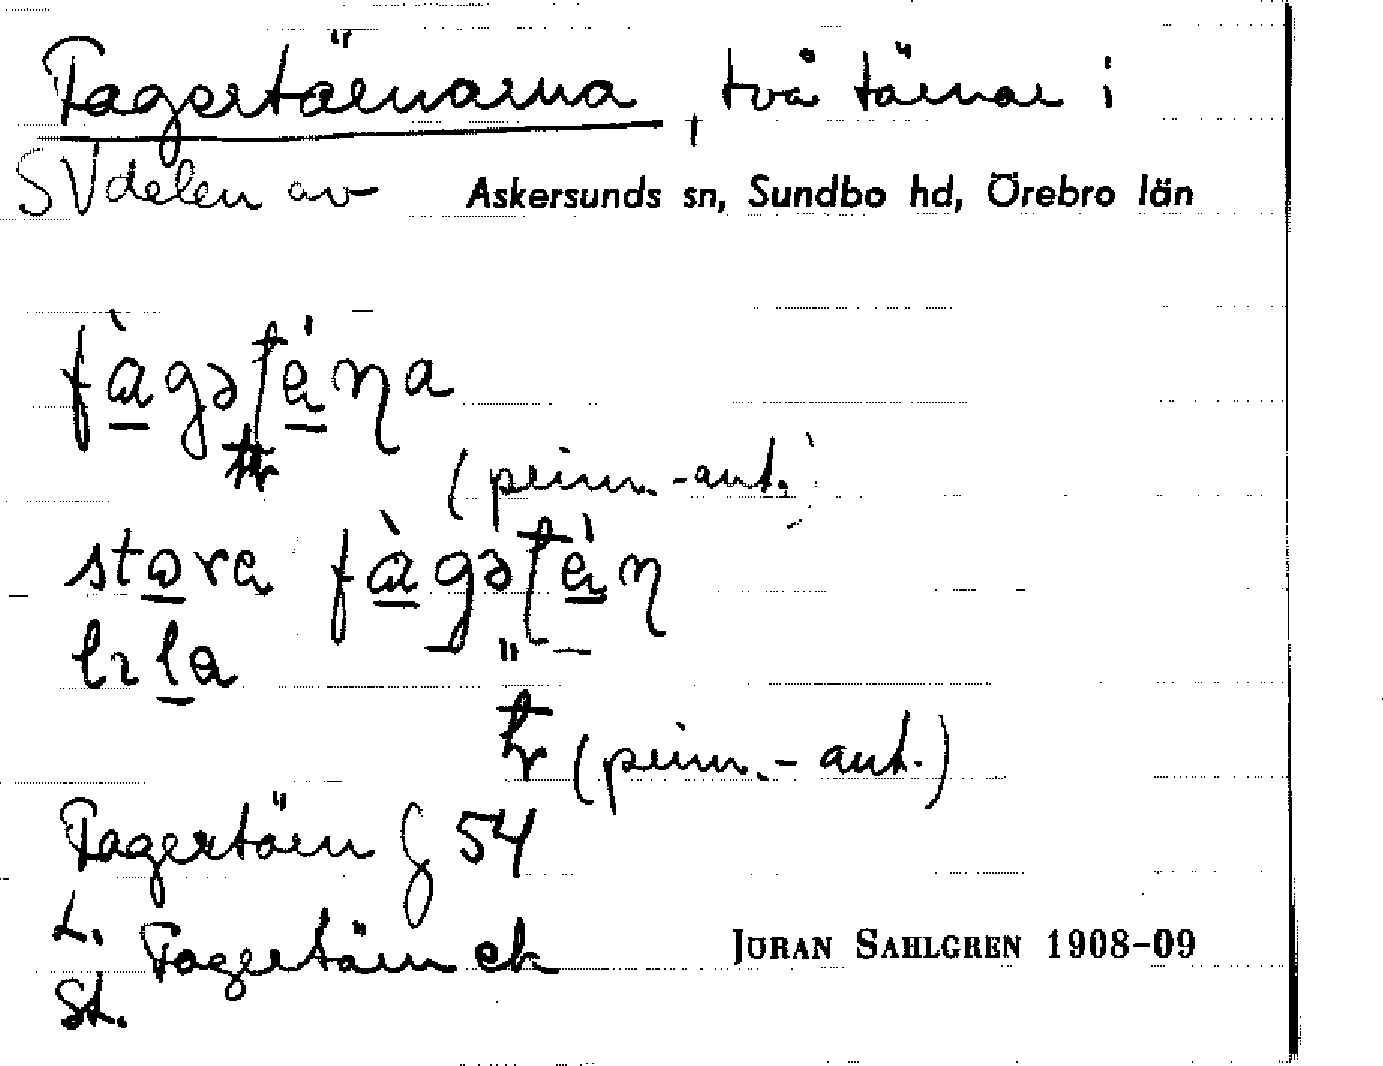 Fagertärnarna, två tärnar i
SV delen av Askersunds sn, Sundbo hd, Örebro län
fàgəténa
(prim.-ant.)
stora fàgətén
lɩla
(prim.-ant.)
Fagertärn G 54
L. Fagertärn ek
St.
JÖRAN SAHLGREN 1908-09